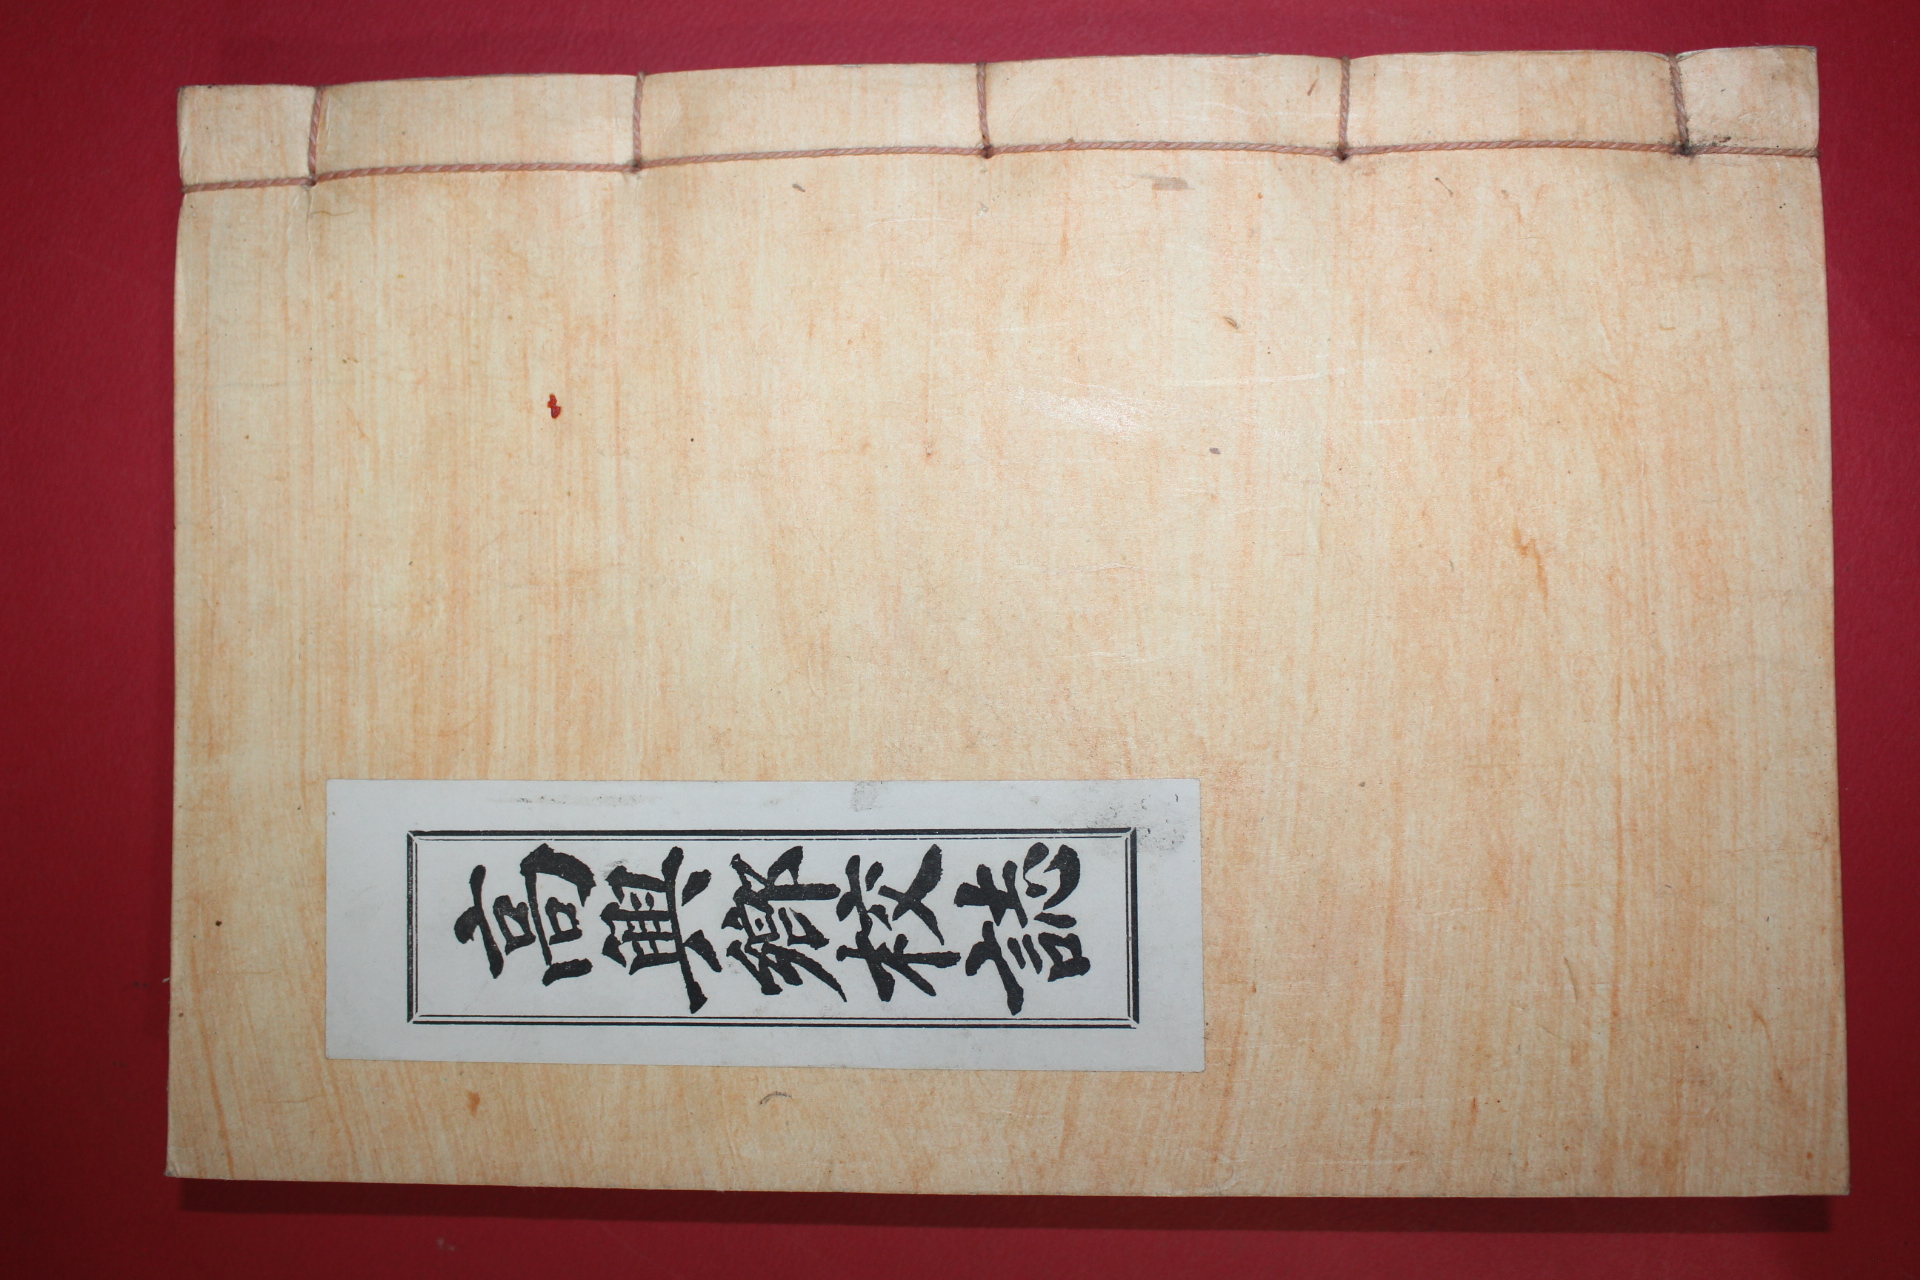 高興鄕校誌